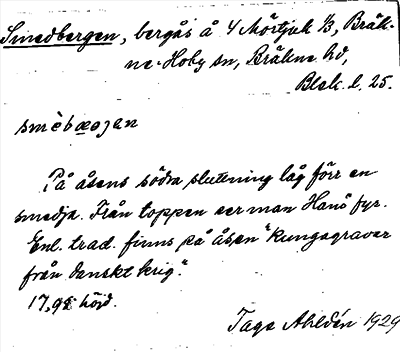 Smedbergen, bergås å 4 Mörtjuk 1/3, Bräk-
ne-Hoby sn, Bräkne hd,
Blek. l. 25.
smèbærjen
På åsens södra slutning låg förr en
smedja. Från toppen ser man Hanö fyr.
Enl. trad. finns på åsen "kungsgravar
från danskt krig".
17,98 höjd.
Tage Ahldén 1929